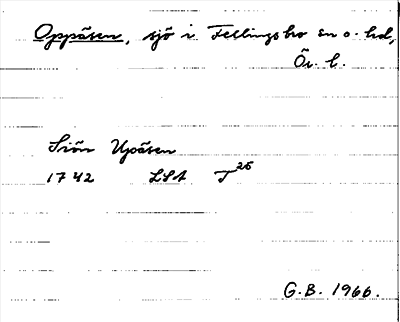 Oppåsen, sjö i Fellingsbro sn o. hd,
Ör. l.
Siön Upåsen
1742 LSA T 26
G.B. 1966.